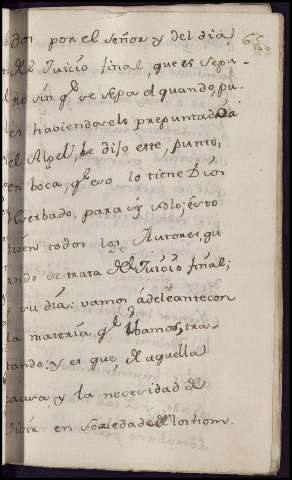 dos por el señor y del dia
del Juicio final, que es sepa-
no sin qe se sepa el quando, pu-
es haviendoselo preguntado a
el se dijo este, punto,
en boca, qe eso lo tiene Dios
Reserbado, para sy solo; esto
dizen todos los Autores, qu
ando se trata del Juicio final;
y su dia: vamos adeleante con
la materia qe ibamos, tra-
tando: y es que de aquella
causa, y la necesidad de
vivir en soziedad de los hom-